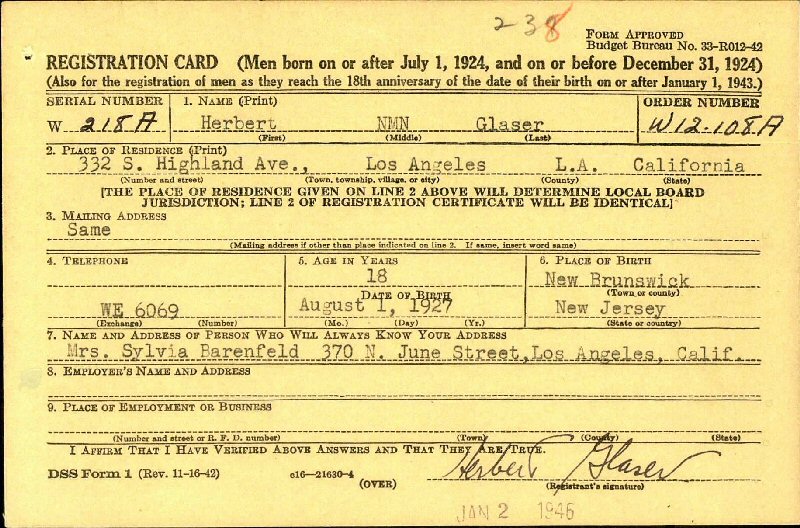 2-38
FORM APPROVED
Budget Bureau No. 33-R012-42
REGISTRATION CARD (Men born on or after July 1, 1924, and on or before December 31, 1924)
(Also for the registration of men as they reach the 18th anniversary of the date of their birth on or after January 1, 1943.)
SERIAL NUMBER 1. NAME (Print) ORDER NUMBER
W 218A Herbert NMN Glaser W12-108A
(First) (Middle) (Last)
2. PLACE OF RESIDENCE (Print)
332 S. Highland Ave., Los Angeles L.A. California
(Number and street) (Town, township, village, or city) (County) (State)
[THE PLACE OF RESIDENCE GIVEN ON LINE 2 ABOVE WILL DETERMINE LOCAL BOARD
JURISDICTION; LINE 2 OF REGISTRATION CERTIFICATE WILL BE IDENTICAL]
3. MAILING ADDRESS
Same
(Mailing address if other than place indicated on line 2. If same, insert word same)
4. TELEPHONE 5. AGE IN YEARS 6. PLACE OF BIRTH
18 New Brunswick
DATE OF BIRTH (Town or county)
WE 6069 August 1, 1927 New Jersey
(Exchange) (Number) (Mo.) (Day) (Yr.) (State or country)
7. NAME AND ADDRESS OF PERSON WHO WILL ALWAYS KNOW YOUR ADDRESS
Mrs. Sylvia Barenfeld 370 N. June Street, Los Angeles, Calif.
8. EMPLOYER'S NAME AND ADDRESS
9. PLACE OF EMPLOYMENT OR BUSINESS
(Number and street or R. F. D. number) (Town) (County) (State)
I AFFIRM THAT I HAVE VERIFIED ABOVE ANSWERS AND THAT THEY ARE TRUE.
DSS Form 1 (Rev. 11-16-42) c16-21630-4 Herbert Glaser
(OVER) (Registrant's signature)
JAN 2 1946